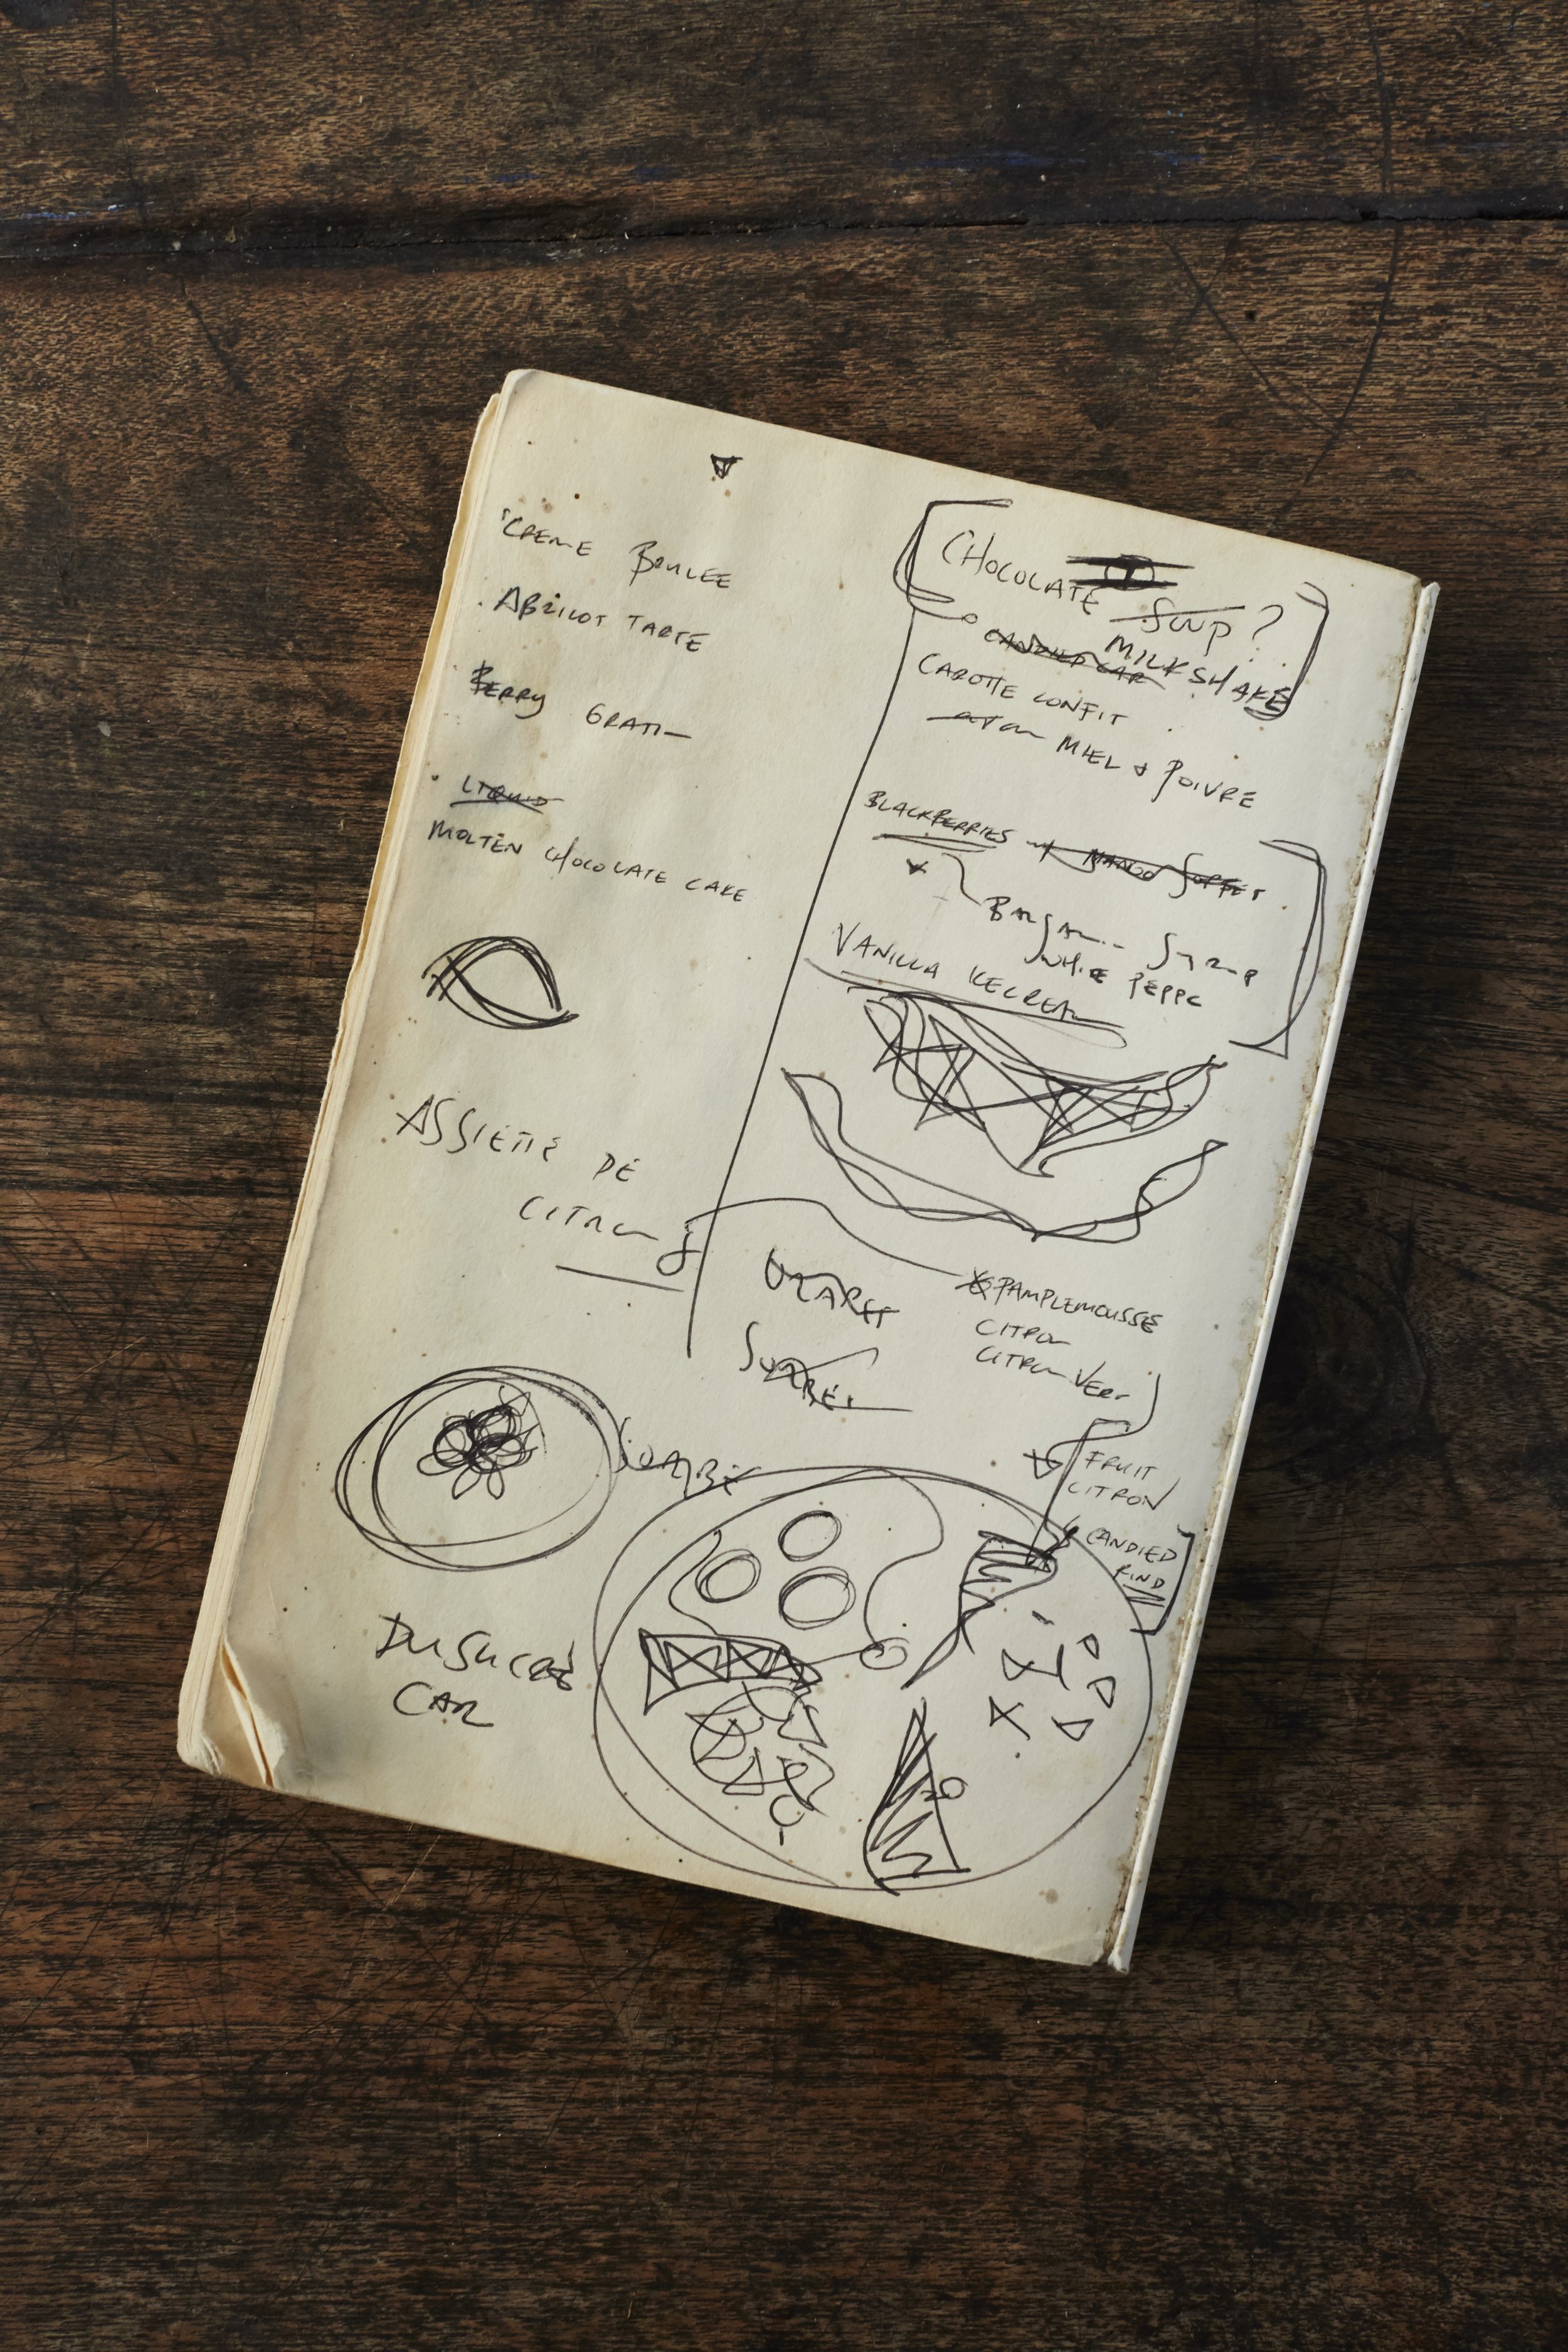 CREME BRULEE
ABRICOT TARTE
BERRY GRATIN
LIQUID
MOLTEN CHOCOLATE CAKE
ASSIETTE DE
CITRON
SORBET
DU SUCRE
CAR
CHOCOLATE SOUP?
MILKSHAKE
CANDIED CAR
CAROTTE CONFIT
MIEL & POIVRE
BLACKBERRIES w/ MANGO SORBET
BALSAMIC SYRUP
WHITE PEPPE
VANILLA ICECREAM
SORBET
PAMPLEMOUSSE
CITRON
CITRON VERT
FRUIT
CITRON
CANDIED
RIND